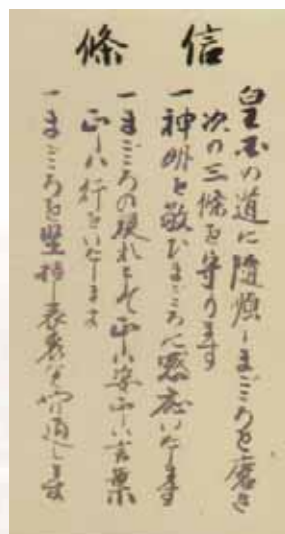 信條
皇國の道に随順しまごころを磨き
次の三條を守ります
一神明を敬ひまごころに感応いたします
一まごころの現れとして正しい姿正しい言葉
正しい行をいたします
一まごころを堅持し表裏なく守り通します